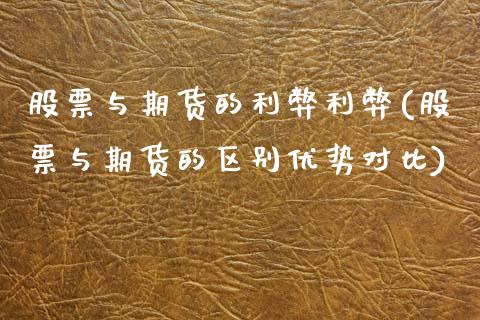 股票与期货的利弊利弊(股
票与期货的区别优势对比)